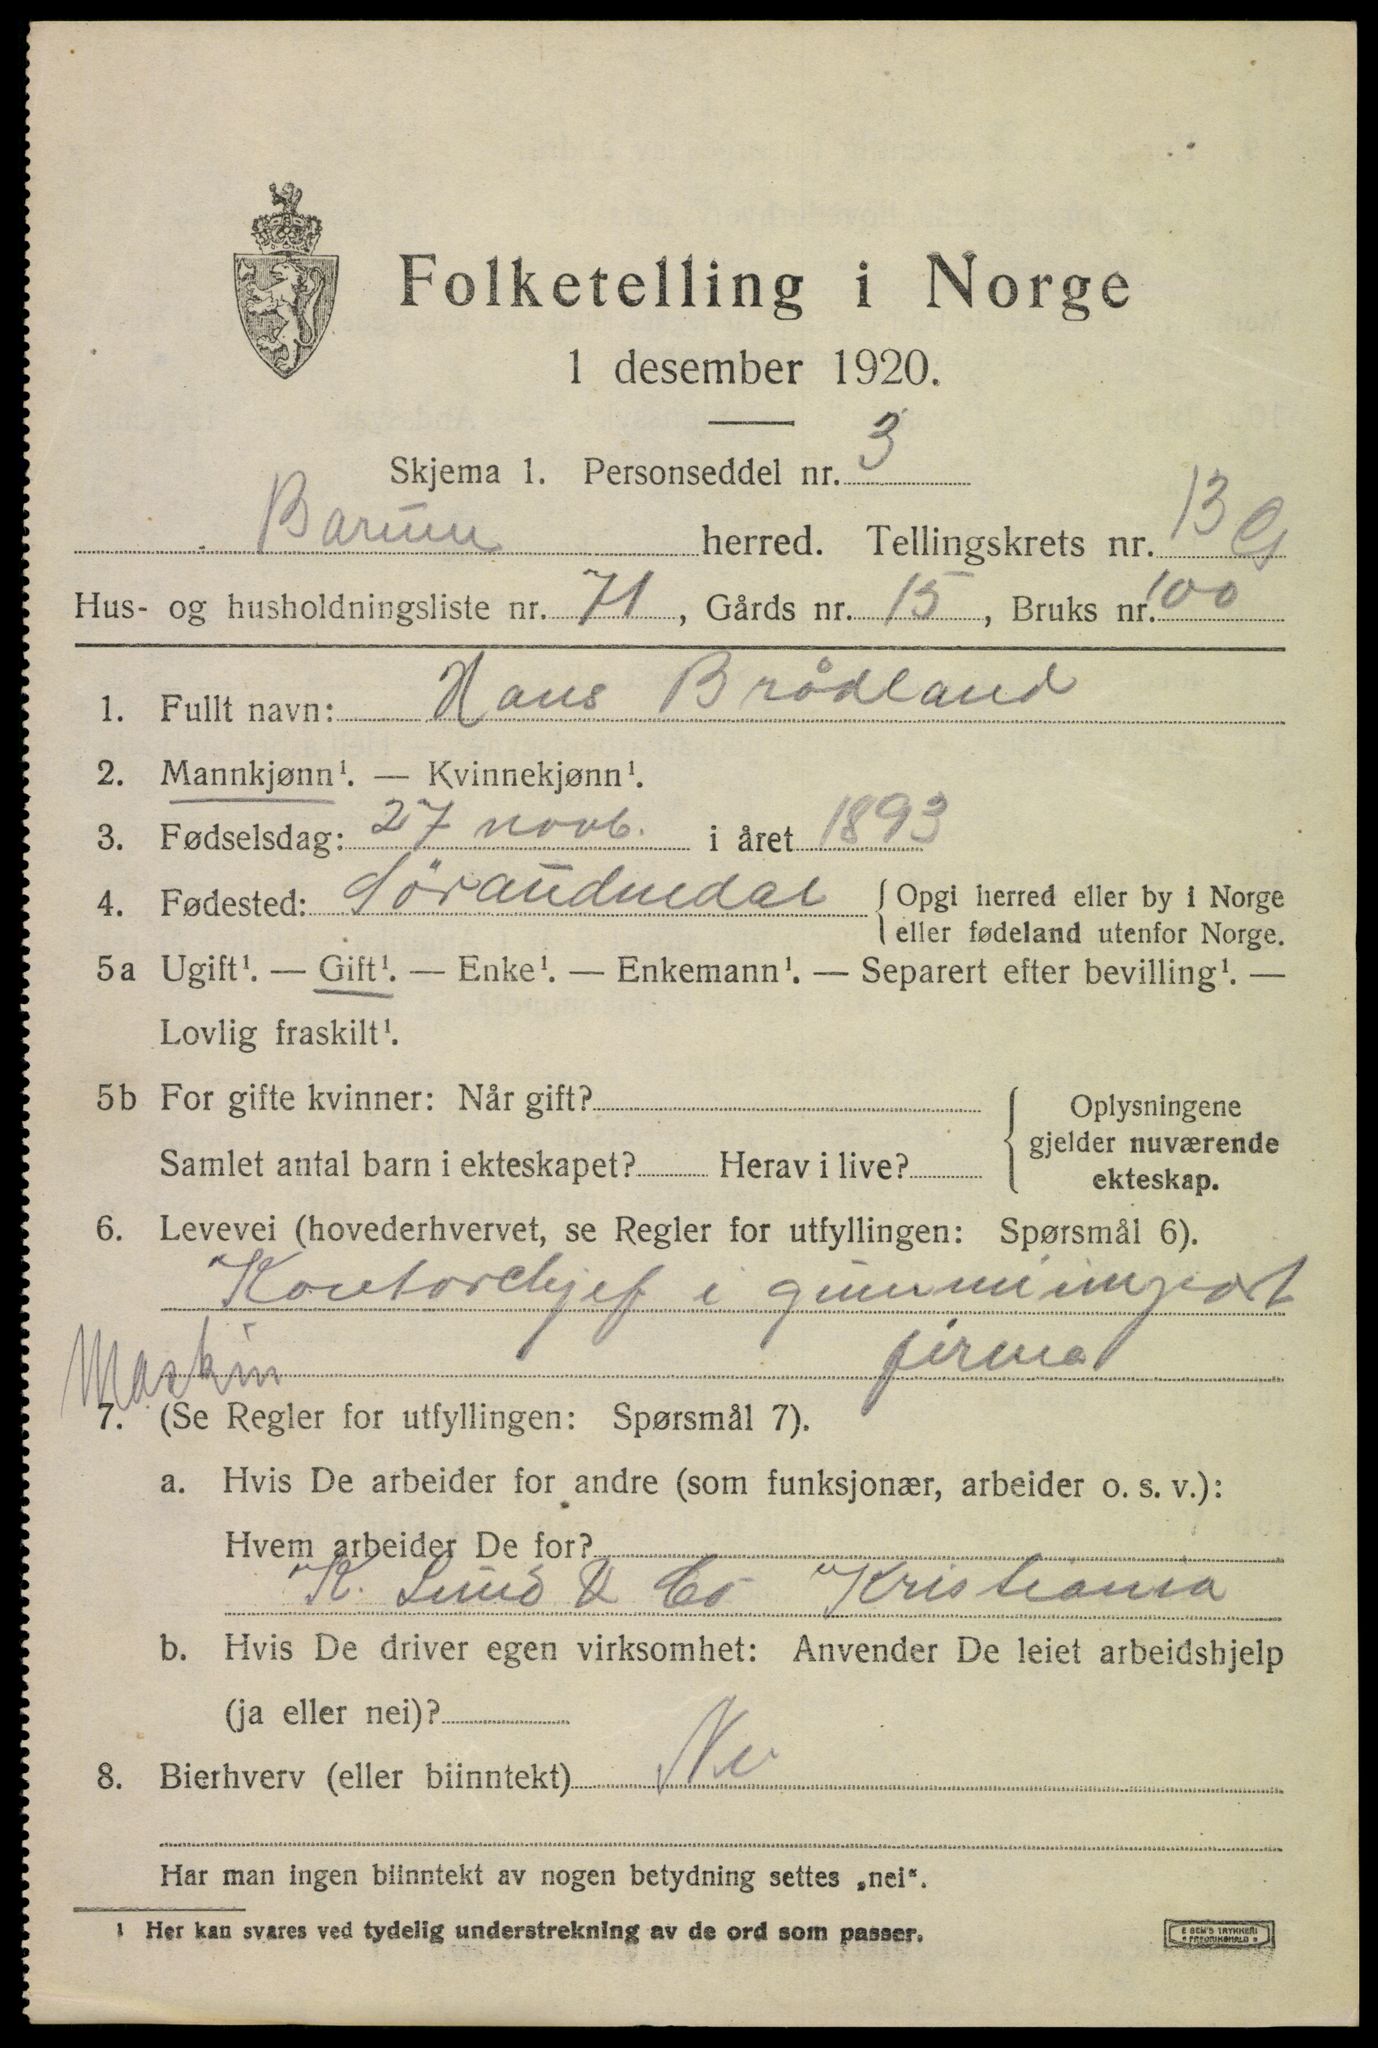 Folketelling i Norge
1 desember 1920.
Skjema 1. Personseddel nr. 3
Barum herred. Tellingskrets nr. 13 G
Hus- og husholdningsliste nr. 71, Gårds nr. 15, Bruks nr. 100
1. Fullt navn: Hans Brådland
2. Mannkjønn¹. — Kvinnekjønn¹.
3. Fødselsdag: 27 novb. i året 1893
4. Fødested: Söraudnedal { Opgi herred eller by i Norge
eller fødeland utenfor Norge.
5a Ugift¹. — Gift¹. — Enke¹. — Enkemann¹. — Separert efter bevilling¹. —
Lovlig fraskilt¹.
5b For gifte kvinner: Når gift?
Samlet antal barn i ekteskapet? Herav i live?
Oplysningene
gjelder nuværende
ekteskap.
6. Levevei (hovederhvervet, se Regler for utfyllingen: Spørsmål 6).
Kontorchjef i gummiimport
Maskin firma
7. (Se Regler for utfyllingen: Spørsmål 7).
a. Hvis De arbeider for andre (som funksjonær, arbeider o. s. v.):
Hvem arbeider De for?
K. Lund & Co Kristiania
b. Hvis De driver egen virksomhet: Anvender De leiet arbeidshjelp
(ja eller nei)?
8. Bierhverv (eller biinntekt) Nei
Har man ingen biinntekt av nogen betydning settes „nei“.
¹ Her kan svares ved tydelig understrekning av de ord som passer.
E SEM'S TRYKKERI
FREDRIKSHALD